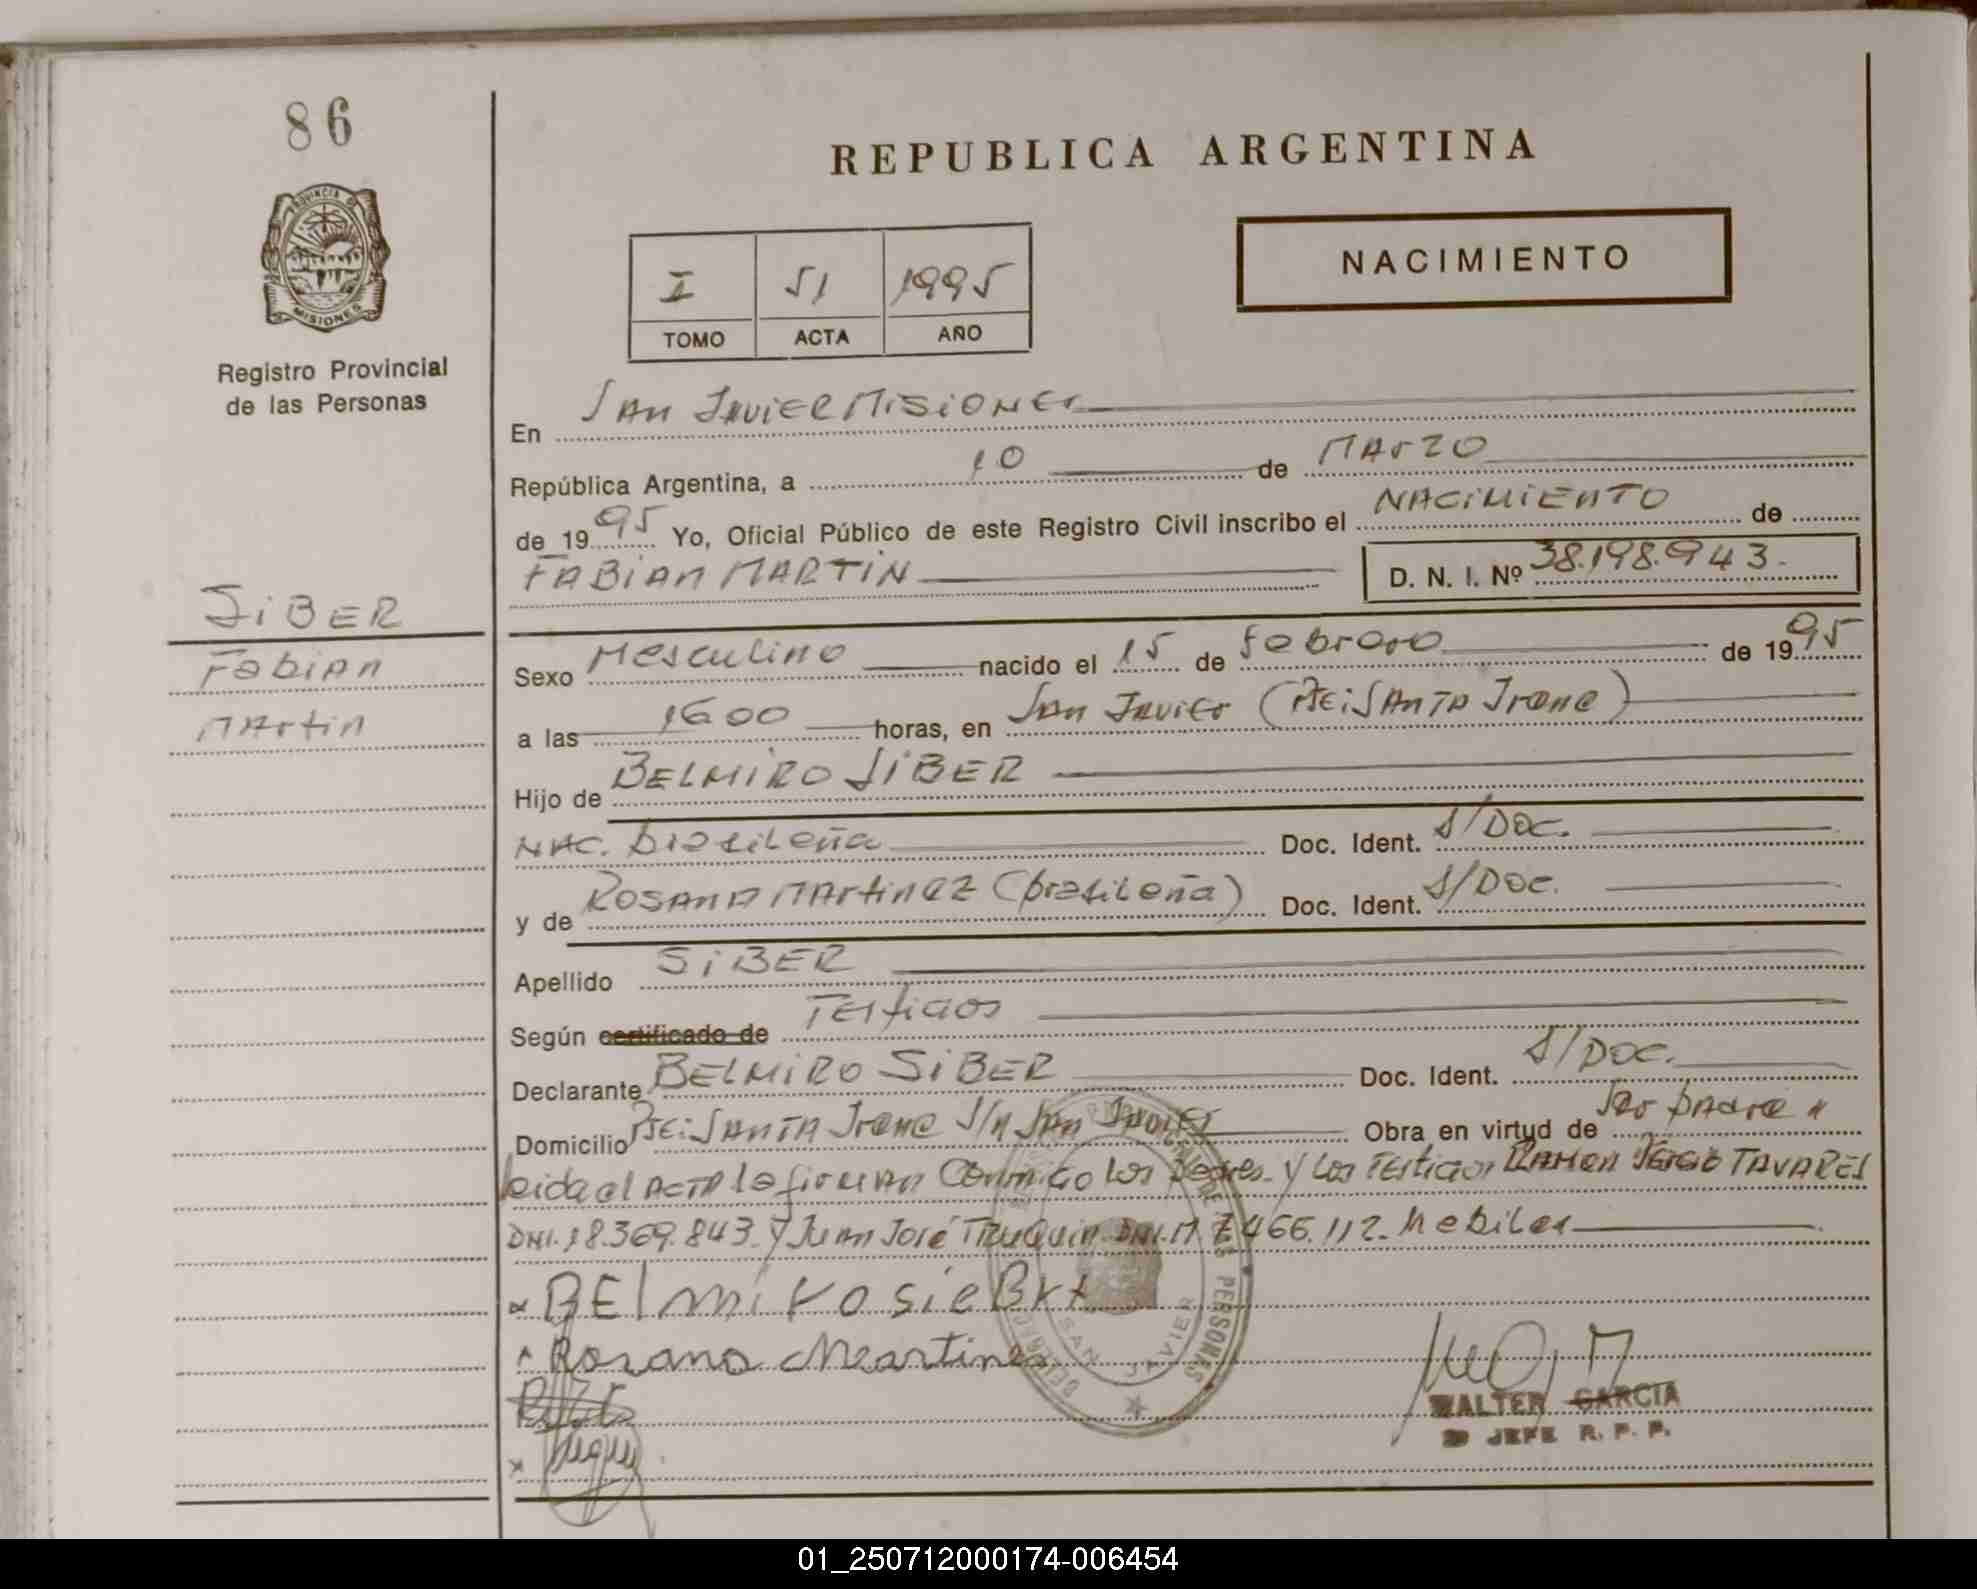 86
PROVINCIA DE
MISIONES
Registro Provincial
de las Personas
REPUBLICA ARGENTINA
I 51 1995
TOMO ACTA AÑO
NACIMIENTO
En San Javier Misiones
República Argentina, a 10 de Marzo
de 1995 Yo, Oficial Público de este Registro Civil inscribo el NACIMIENTO de
FABIAN MARTIN D. N. I. Nº 38.198.943.
SIBER
Fabian
Martin
Sexo Masculino nacido el 15 de Febrero de 1995
a las 1600 horas, en San Javier (Pje: Santa Irene)
Hijo de BELMIRO SIBER
NAC. brasileña Doc. Ident. S/Doc.
y de ROSANA MArtinez (brasileña) Doc. Ident. S/Doc.
Apellido SIBER
Según certificado de Testigos
Declarante BELMIRO SIBER Doc. Ident. S/Doc.
Domicilio Pje: Santa Irene S/n San Javier Obra en virtud de Ser padre
Leida el ACTA la firman Conmigo los Padres y los Testigos RAMON Sergio TAVARES
DNI. 18.369.843 y Juan José DNI. M 7.466.112. Habiles
BElmiro sieBrt
Rosana Martines
PERSONAS
SAN JAVIER
WALTER GARCIA
JEFE R. P. P.
01_250712000174-006454